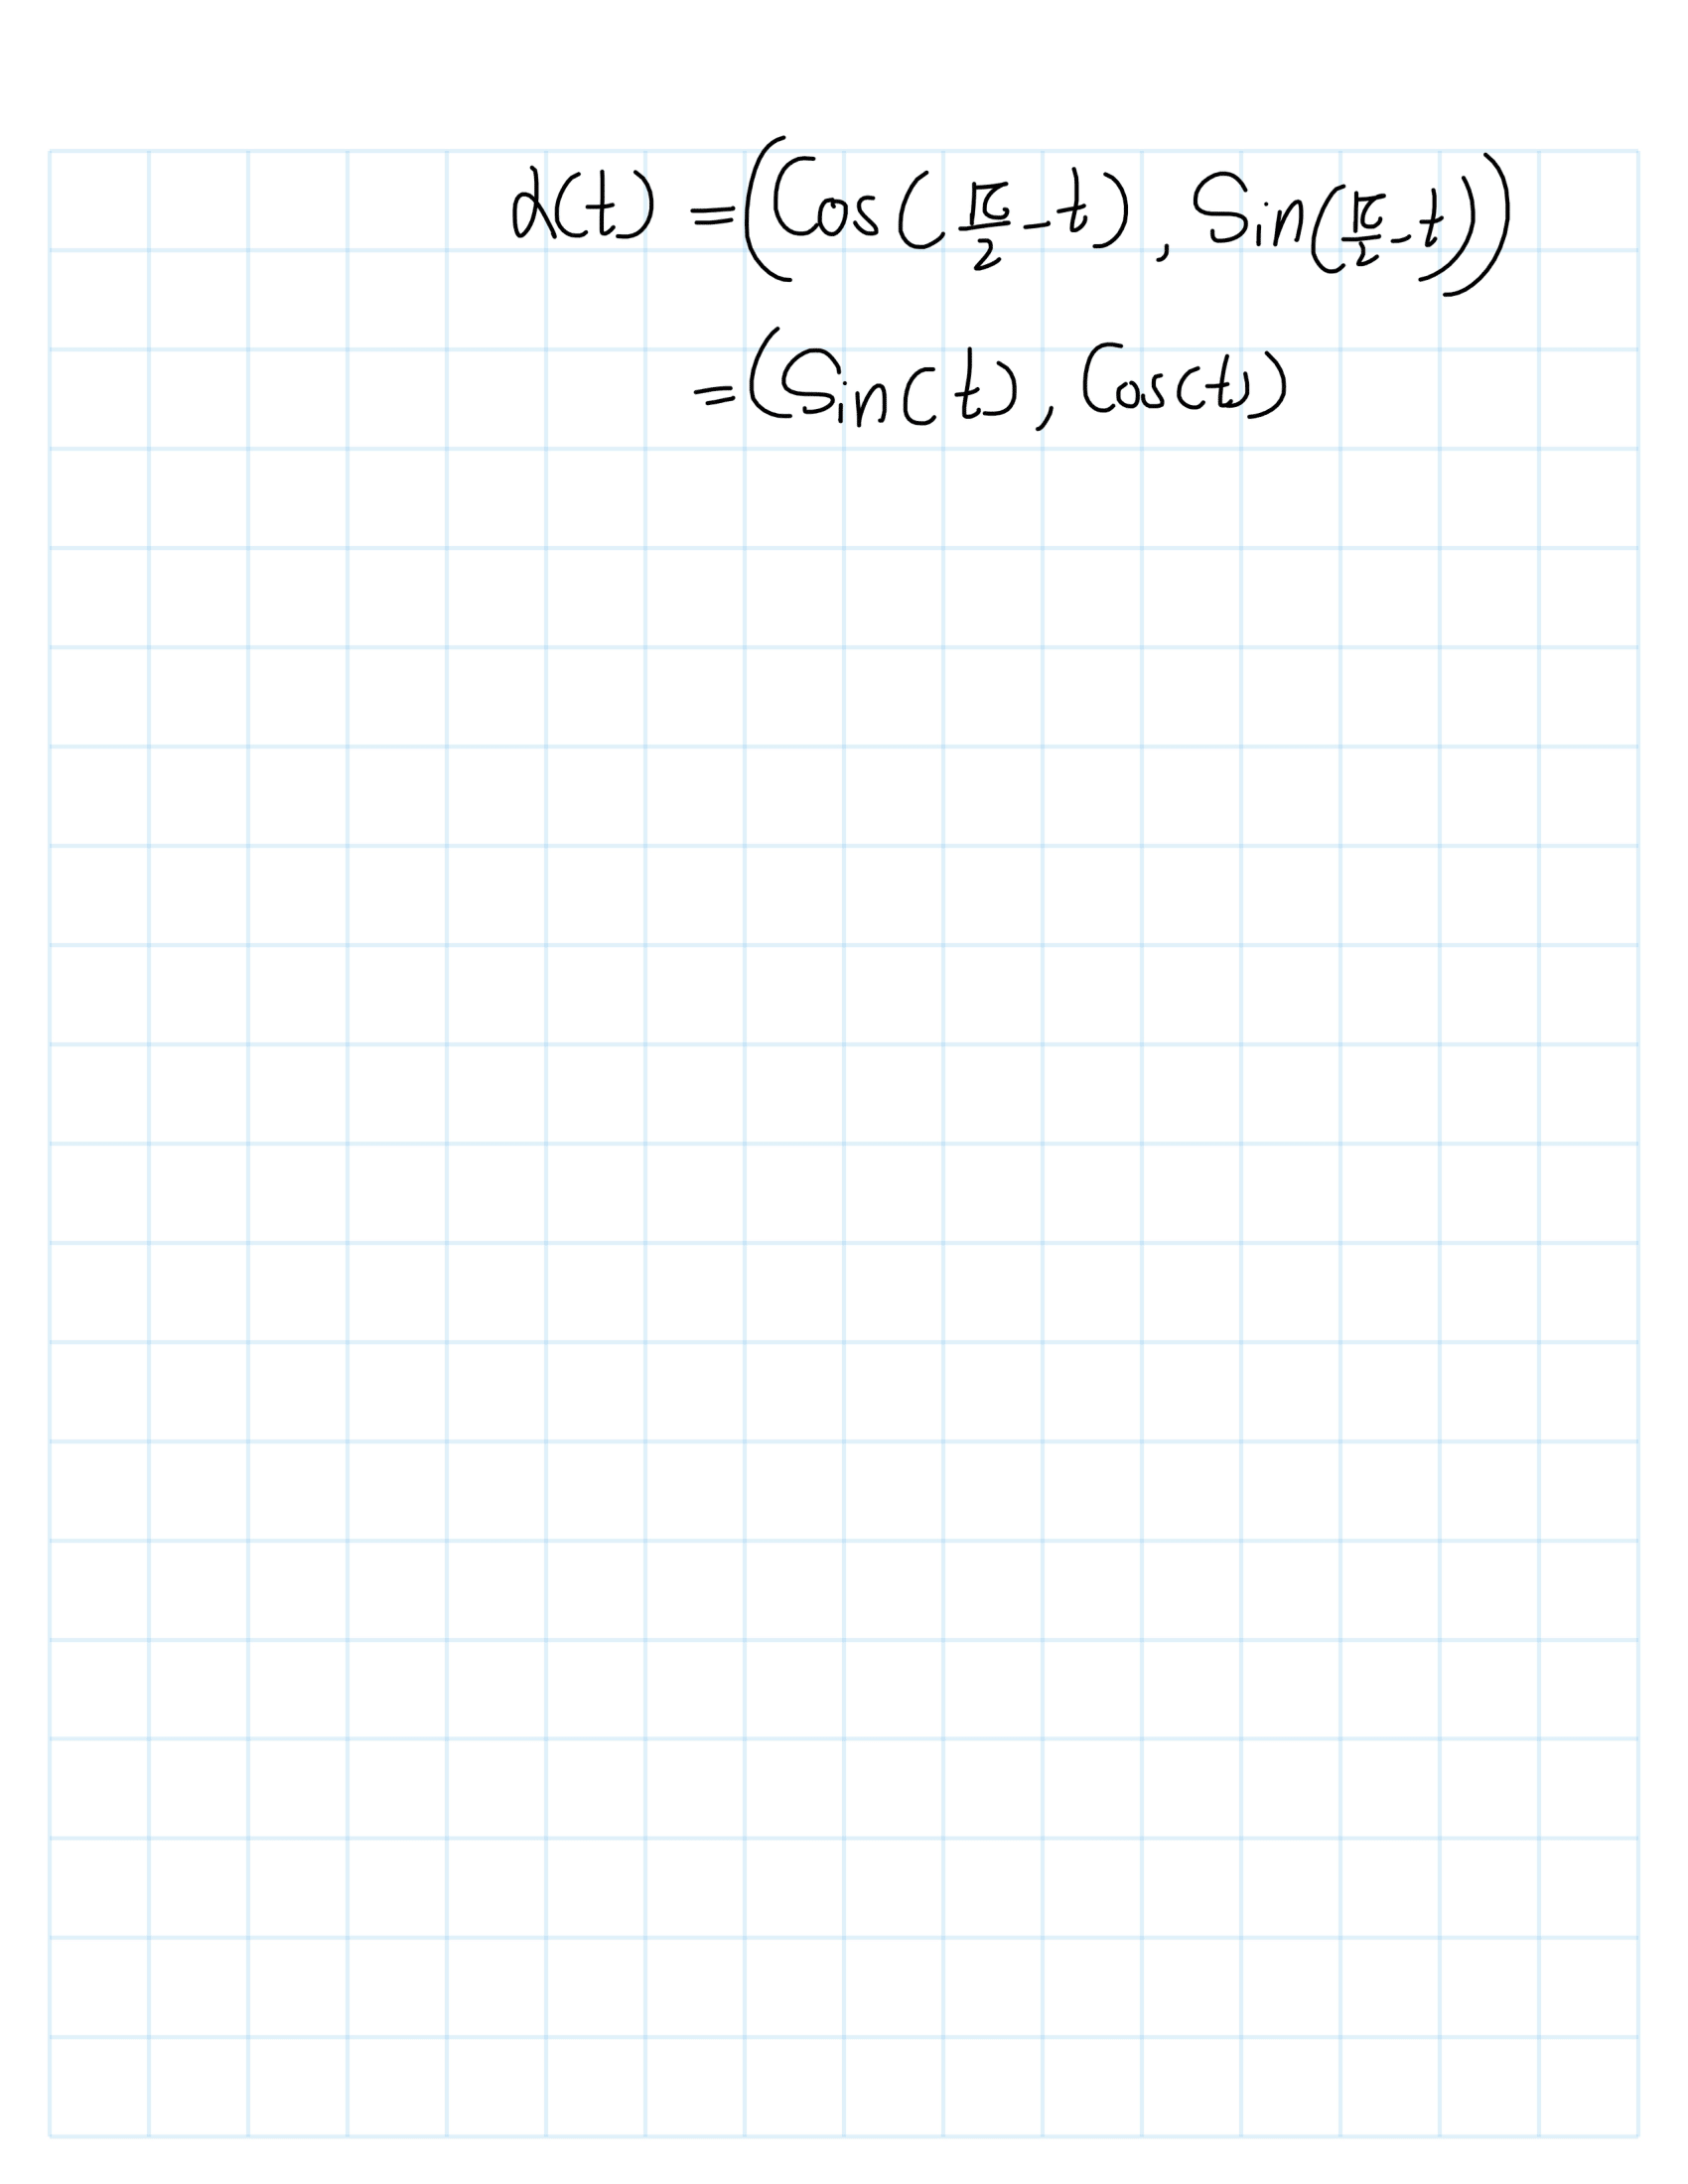 α(t) = (Cos(π/2 - t), Sin(π/2 - t))
= (Sin(t), Cos(t))